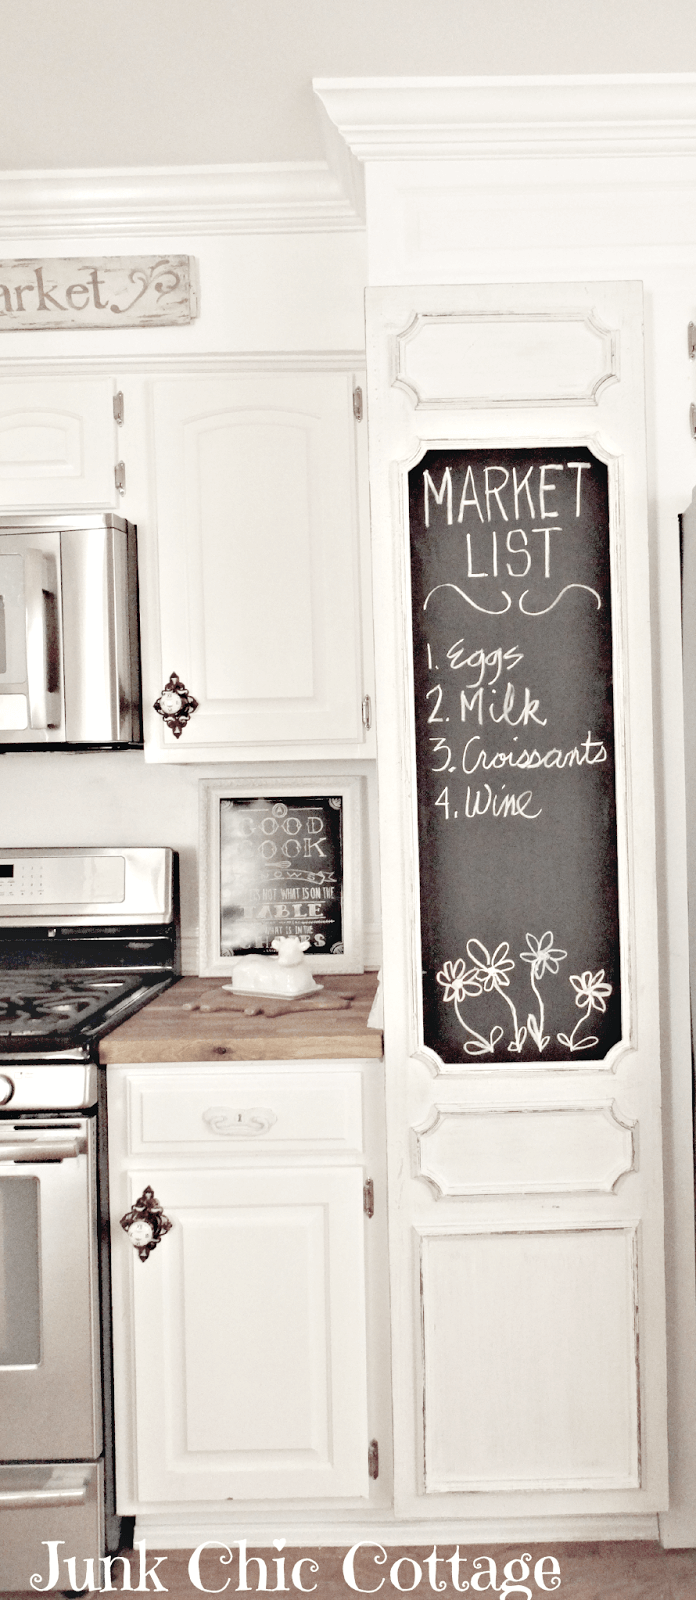 arket
MARKET
LIST
1. Eggs
2. Milk
3. Croissants
4. Wine
GOOD
COOK
KNOWS
IT'S NOT WHAT IS ON THE
TABLE
WHAT IS IN THE
1
Junk Chic Cottage